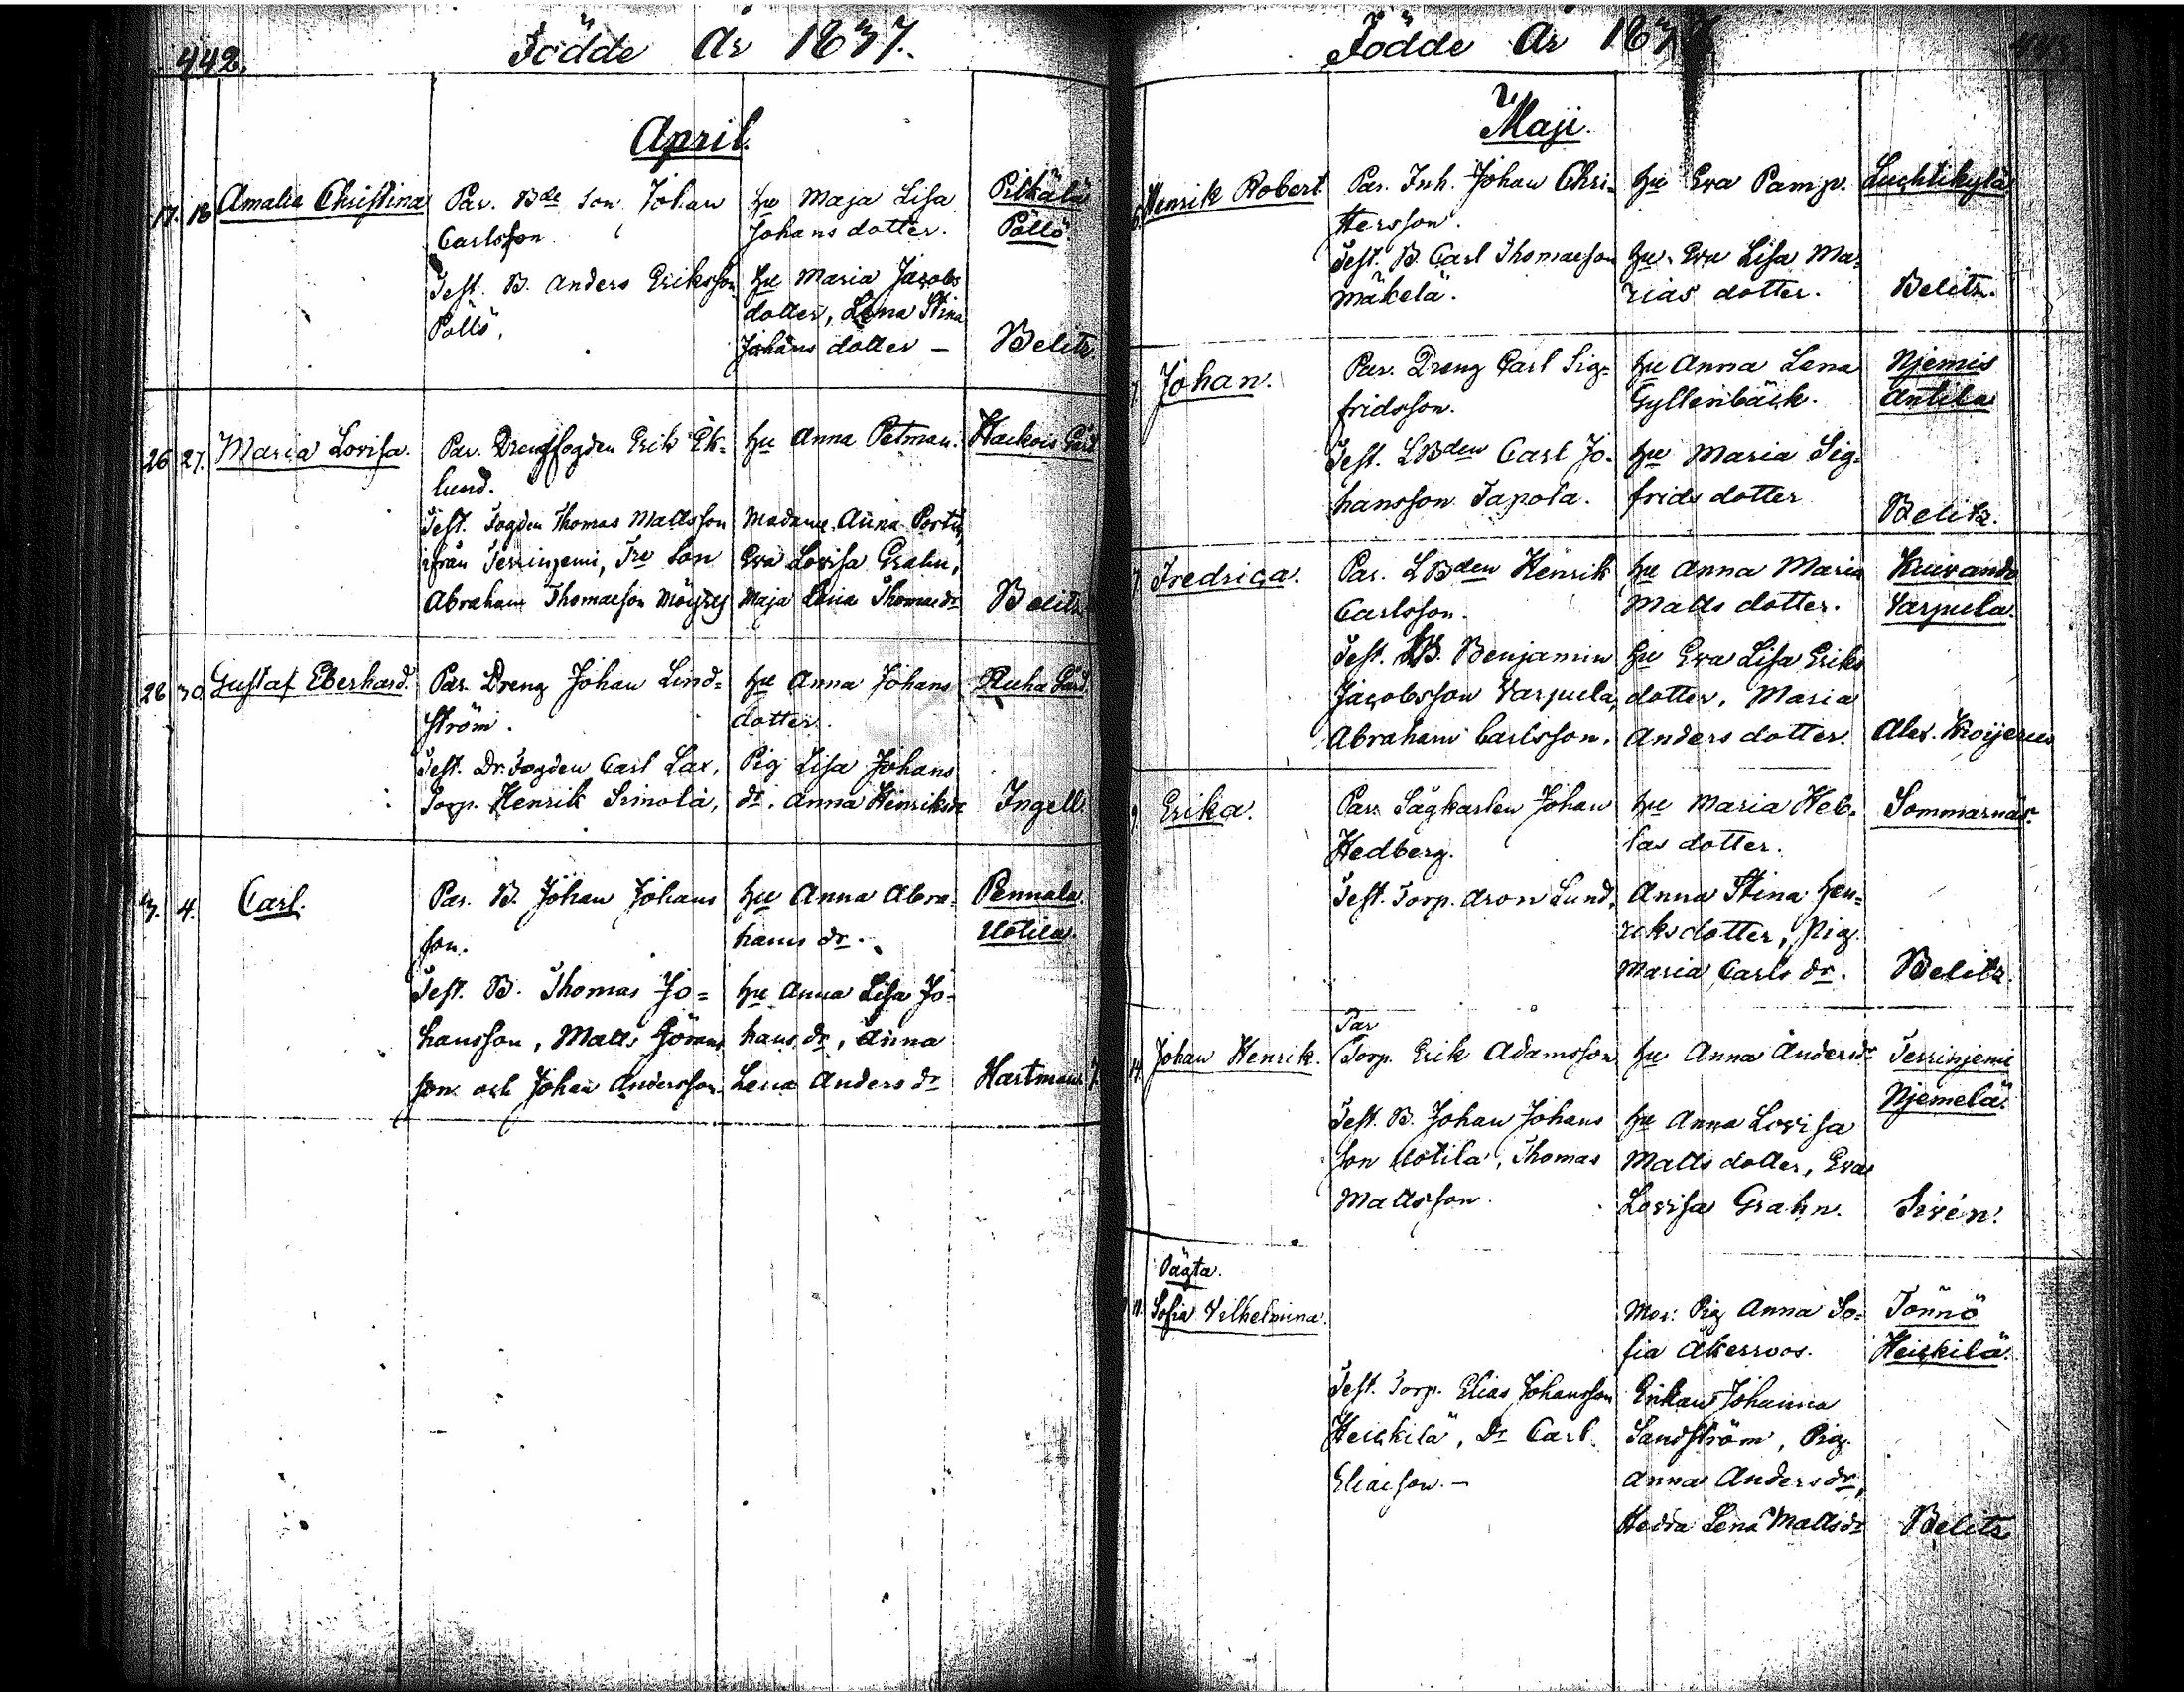 442.
Födde År 1837.
April.
17. 18 Amalia Christina Par. Bde Son Johan Hu Maja Lisa Pitkälä
Carlsson Johans dotter. Pällö
Test. B. Anders Eriksson Hu Maria Jacobs
Pällö, dotter, Lena Stina
Johans dotter — Belitz.
26 27. Maria Lovisa. Par. Drengfogden Erik Ek= Hu Anna Petman. Hackois Gård
lund.
Test. Fogden Thomas Mattsson Madame Anna
ifrån Terrinjemi, Son Eva Lovisa Grahn,
Abraham Thomasson Maja Lena Thomasdr Belitz
28 30. Gustaf Eberhard. Par. Dreng Johan Lind= Hu Anna Johans Ruha Gård
ström. dotter.
Test. Dr. Fogden Carl Lax, Pig Lisa Johans
Torp. Henrik dr. Anna Henriksdr Ingell.
3. 4. Carl. Par. B. Johan Johans Hu Anna Abra= Pennala
son. hams dr. Uotila.
Test. B. Thomas Jo= Hu Anna Lisa Jo=
hansson, Matts Görans hans dr, Anna
son och Johan Andersson Lena Anders dr Hartman
Födde År 1837
Maji.
Henrik Robert Par. Inh. Johan Chri= Hu Eva Pamp. Luchtikylä
stersson.
Test. B. Carl Thomasson Hu Eva Lisa Ma=
Mäkelä. rias dotter. Belitz.
7 Johan. Par. Dreng Carl Sig= Hu Anna Lena Njemis
fridsson. Gyllenbäck. Antila
Test. LBden Carl Jo= Hu Maria Sig=
hansson Tapola. frids dotter
Belitz.
7 Fredrica. Par. LBden Henrik Hu Anna Maria Kuivando
Carlsson. Matts dotter. Varpula.
Test. LB. Benjamin Hu Eva Lisa Eriks
Jacobsson Varpula, dotter, Maria
Abraham Carlsson. Anders dotter. Alex. Krojerus
9. Erika. Par. Sågkarlen Johan Hu Maria Heb= Sommarnäs.
Hedberg. las dotter.
Test. Torp. Aron Lund, Anna Stina Hen=
riksdotter, Pig.
Maria Carls dr. Belitz.
Par
14. Johan Henrik. Torp. Erik Adamsson Hu Anna Andersdr Terrinjemi
Njemelä.
Test. B. Johan Johans Hu Anna Lovisa
son Uotila, Thomas Matts dotter, Eva
Mattsson. Lovisa Grahn. Sirén.
Oägta.
11. Sofia Vilhelmina. Mor: Pig Anna So= Tönnö
fia Åkerroos. Heickilä.
Test. Torp. Elias Johansson Enkan Johanna
Heickilä, Dr Carl Sandström, Pig.
Eliasson. — Anna Anders dr,
Hedda Lena Mattsdr Belitz